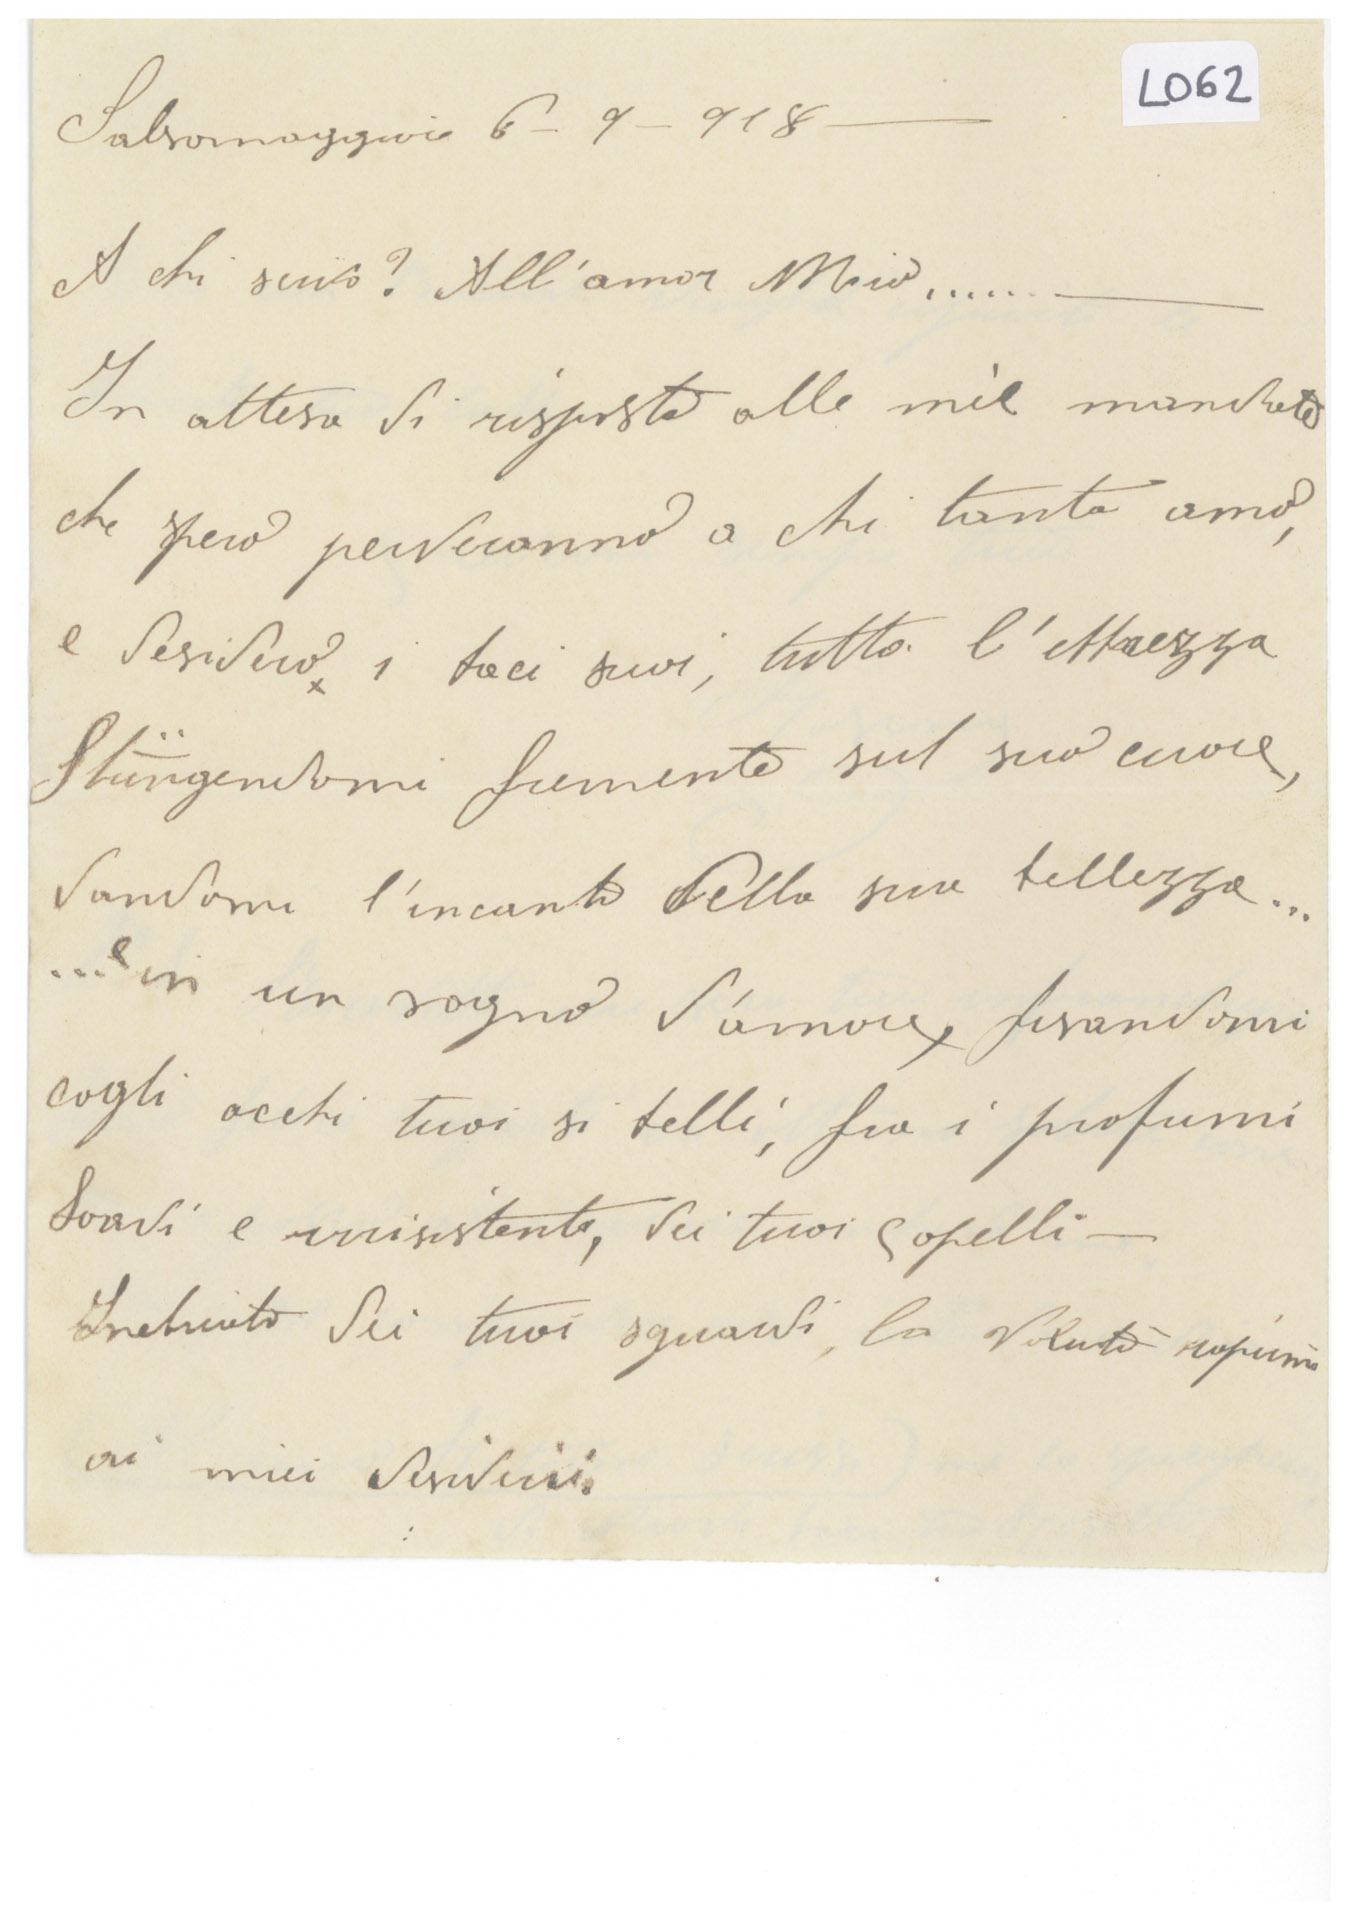 L062
Salsomaggiore 6 - 9 - 918
A chi scrivo? All'amor Mio......
In attesa di risposta alle mie mandate
che spero perverranno a chi tanto amo,
e desidero i baci suoi, tutta l'ebbrezza
Stringendomi fremente sul suo cuore,
dandomi l'incanto della sua bellezza...
...e in un sogno d'amore, fisandomi
cogli occhi tuoi si belli, fra i profumi
Soavi e irrisistenti, dei tuoi capelli —
Inebriato dei tuoi sguardi, la voluta
ai miei desiderii.